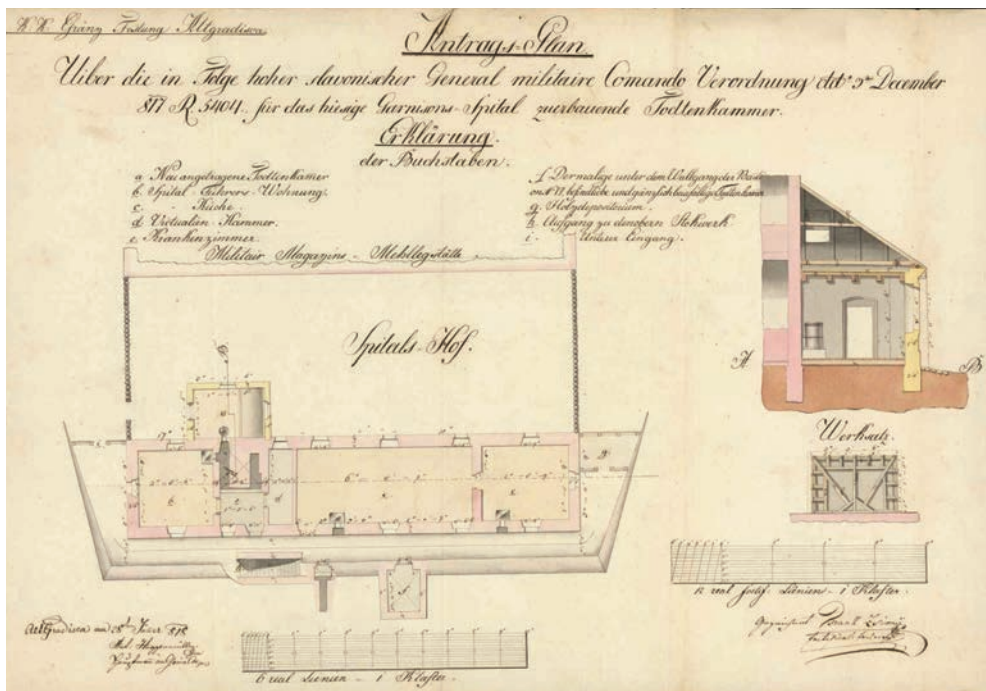 K. K. Gränz Festung Altgradisca
Antrags-Plan
Uiber die in Folge hoher slavonischer General militaire Comando Verordnung ddo 5n December
817 R 5404. für das hiesige Garnisons-Spital zuerbauende Todtenkammer.
Erklärung.
der Buchstaben.
a Neu angetragene Todtenkamer
b. Spital-Führers-Wohnung.
c - Küche.
d Victualien-Kammer.
e. Krankenzimmer.
f Dermalige unter dem Wallgang der Basti-
on befindliche und gänzlich baufällige
g. Holzdepositorium.
h. Aufgang zu dem obern Stokwerk
i. - Untere Eingang.
Militair Magazins-
Spitals-Hof.
A
B
Werksatz.
12 real Linien - 1 Klafter.
Altgradisca am 28n 818
6 real Linien - 1 Klafter.